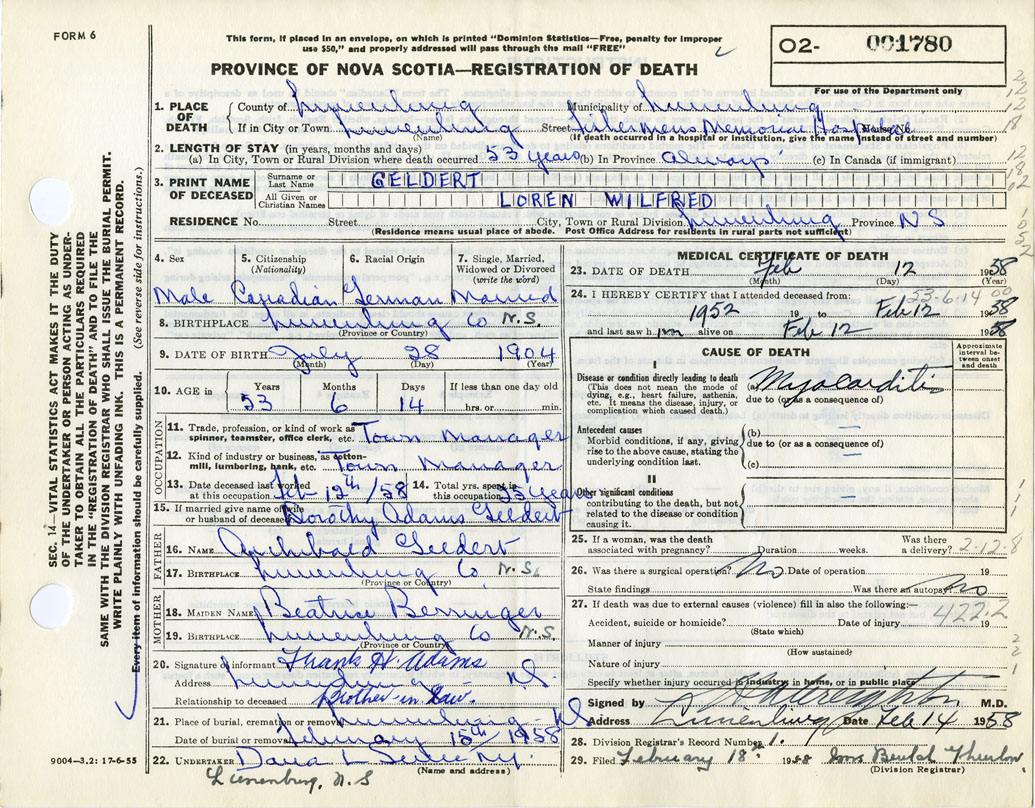 FORM 6
This form, if placed in an envelope, on which is printed "Dominion Statistics—Free, penalty for improper
use $50," and properly addressed will pass through the mail "FREE"
02- 001780
For use of the Department only
PROVINCE OF NOVA SCOTIA—REGISTRATION OF DEATH
1. PLACE OF DEATH
County of Lunenburg Municipality of Lunenburg
If in City or Town Lunenburg Street Fishermens Memorial Hospital
(Name) (If death occurred in a hospital or institution, give the name instead of street and number)
2. LENGTH OF STAY (in years, months and days)
(a) In City, Town or Rural Division where death occurred 53 years (b) In Province always (c) In Canada (if immigrant)
3. PRINT NAME OF DECEASED
Surname or Last Name GELDERT
All Given or Christian Names LOREN WILFRED
RESIDENCE No. Street City, Town or Rural Division Lunenburg Province N S
(Residence means usual place of abode. Post Office Address for residents in rural parts not sufficient)
4. Sex 5. Citizenship (Nationality) 6. Racial Origin 7. Single, Married, Widowed or Divorced (write the word)
Male Canadian German Married
8. BIRTHPLACE Lunenburg Co N.S.
(Province or Country)
9. DATE OF BIRTH July 28 1904
(Month) (Day) (Year)
10. AGE in Years Months Days If less than one day old
53 6 14 hrs. or min.
OCCUPATION
11. Trade, profession or kind of work as spinner, teamster, office clerk, etc. Town Manager
12. Kind of industry or business, as cotton-mill, lumbering, bank, etc. Town Manager
13. Date deceased last worked at this occupation Feb 12th/58 14. Total yrs. spent in this occupation 35 years
15. If married give name of wife or husband of deceased Dorothy Adams Geldert
FATHER
16. NAME Archibald Geldert
17. BIRTHPLACE Lunenburg Co N.S.
(Province or Country)
MOTHER
18. MAIDEN NAME Beatrice Berringer
19. BIRTHPLACE Lunenburg Co N.S.
(Province or Country)
20. Signature of informant Frank H. Adams
Address Lunenburg - NS.
Relationship to deceased Brother in Law.
21. Place of burial, cremation or removal Lunenburg - NS
Date of burial or removal February 15th/1958
22. UNDERTAKER Dana L
(Name and address)
Lunenburg, N.S
9004—3.2: 17-6-55
MEDICAL CERTIFICATE OF DEATH
23. DATE OF DEATH Feb 12 1958
(Month) (Day) (Year)
53-6-14 00
24. I HEREBY CERTIFY that I attended deceased from:
1952 19 to Feb 12 1958
and last saw him alive on Feb 12 1958
CAUSE OF DEATH
Approximate interval between onset and death
I
Disease or condition directly leading to death
(This does not mean the mode of dying, e.g., heart failure, asthenia, etc. It means the disease, injury, or complication which caused death.)
(a) Myocarditis
due to (or as a consequence of)
Antecedent causes
Morbid conditions, if any, giving rise to the above cause, stating the underlying condition last.
(b) —
due to (or as a consequence of)
(c)
II
Other significant conditions
contributing to the death, but not related to the disease or condition causing it.
—
25. If a woman, was the death associated with pregnancy? Duration weeks. Was there a delivery? 2-12-8
26. Was there a surgical operation? No Date of operation 19
State findings Was there an autopsy No
27. If death was due to external causes (violence) fill in also the following:— 422.2
Accident, suicide or homicide? Date of injury 19
(State which)
Manner of injury
(How sustained)
Nature of injury
Specify whether injury occurred in industry in home, or in public place
Signed by M.D.
Address Lunenburg Date Feb 14 1958
28. Division Registrar's Record Number 1.
29. Filed February 18th 1958 Mrs Beulah
(Division Registrar)
SEC. 14—VITAL STATISTICS ACT MAKES IT THE DUTY
OF THE UNDERTAKER OR PERSON ACTING AS UNDER-
TAKER TO OBTAIN ALL THE PARTICULARS REQUIRED
IN THE "REGISTRATION OF DEATH" AND TO FILE THE
SAME WITH THE DIVISION REGISTRAR WHO SHALL ISSUE THE BURIAL PERMIT.
WRITE PLAINLY WITH UNFADING INK. THIS IS A PERMANENT RECORD.
Every item of information should be carefully supplied. (See reverse side for instructions.)